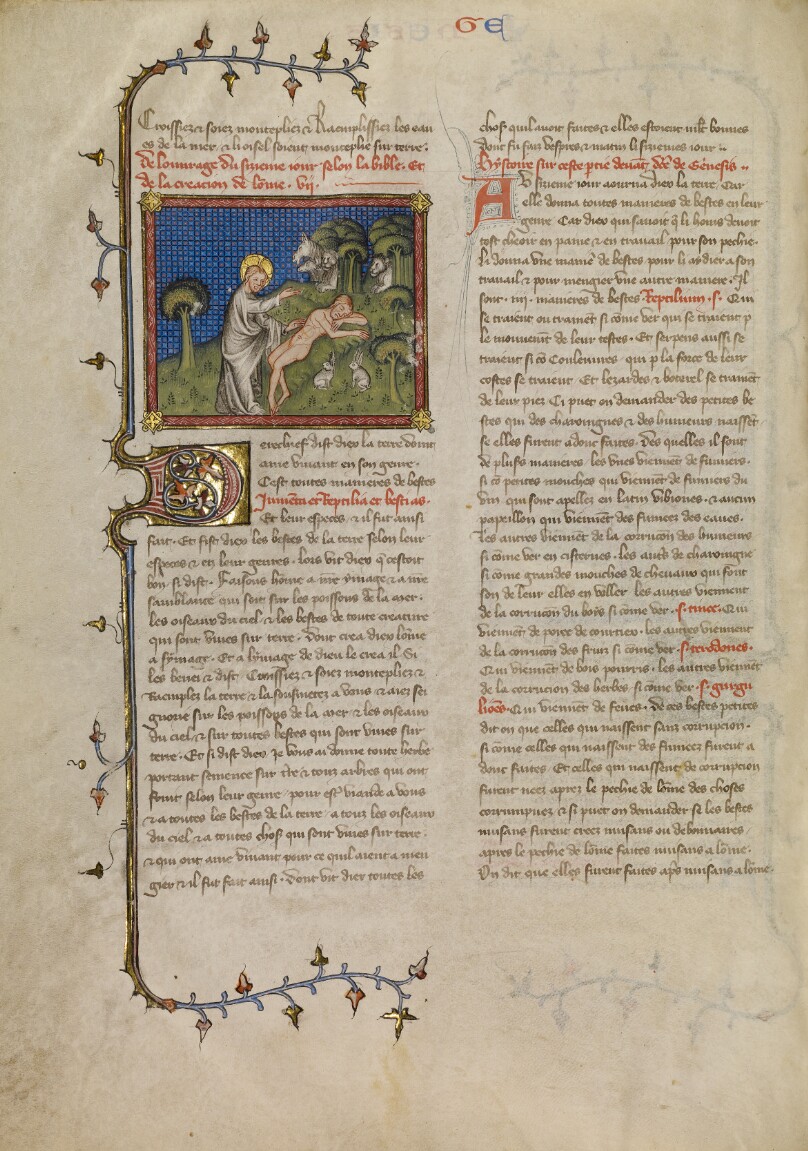 GE
Croissiez ⁊ soiez monteplies ⁊ Raemplissiez les eau
es de la mer. ⁊ li oisel soient monteplie sur terre.
De louurage du sizieme iour selon la bible. Et
de la creacion de lome. vij.
Derechief dist diex la terre doint
ame viuant en son genre.
Cest toutes manieres de bestes
Jumenta et Reptilia et bestias.
Et leur especes. ⁊ il fut ainsi
fait. Et fist diex les bestes de la terre selon leur
especes ⁊ en leur genres. Lors vit diex q̃ cestoit
bon si dist. Faisons home a nr̃e ymage ⁊ a nr̃e
samblance qui soit sur les poissons de la mer.
les oiseaux du ciel. ⁊ les bestes de toute creature
qui sont viues sur terre. Dont crea diex lõme
a symage. Et a lymage de dieu le crea il Si
les beneí ⁊ dist Croissiez ⁊ soiez montepliez ⁊
Raemplez la terre ⁊ la sousmetez a vous ⁊ aiez sei
gnorie sur les poissons de la mer ⁊ les oiseaux
du ciel ⁊ sur toutes bestes qui sont viues sur
terre. Et si dist diex Je vous ai donne toute herbe
portant semence sur t̃re ⁊ touz arbres qui ont
fruit selon leur genre. pour estr̃ viande a vous
⁊ a toutes les bestes de la terre. a touz les oiseaux
du ciel ⁊ a toutes chos̃ qui sont viues sur terre.
⁊ qui ont ame viuant pour ce quil aient a men
gier ⁊ il fut fait ainsi. Dont vit diex toutes les
chos̃ quil auoit faites ⁊ elles estoient ml̃t bonnes
dont fu fait vespres ⁊ matin li sizieme iour.
Hystoire sur ceste ptie deuãt dc̃te de Genesis
Au sizieme iour aourna diex la terre. Car
elle donna toutes manieres de bestes en leur
genre Car diex qui sauoit q̃ li homs deuoit
tost cheoir en paine ⁊ en trauail pour son pechie.
li donna vne maniere de bestes pour li aydier a son
trauail ⁊ pour mengier vne autre maniere. Il
sont .iij. manieres de bestes Reptilium. s. Qui
se traient ou trainet si come ver qui se traient p
le mouuemẽt de leur testes. Et serpens aussi se
traient si cõ Couleuures. qui p la force de leur
costes se traient. Et lezardes ⁊ boterel se trainẽt
de leur piez Ci puet on demander des petites be
stes qui des charoingnes ⁊ des humeurs naissẽt
se elles furent adonc faites. Des quelles il sont
de plus̃ manieres. les vnes viennẽt de fumiers.
si cõ petites mouches qui viennẽt de fumiers du
vin qui sont apellez en latin vibiones. ⁊ aucun
papeillon qui viennẽt des fumees des eaues.
Les autres viennẽt de la corrucõn des humeurs
si come ver en cisternes. Les autres de charoingne
si come grandes mouches de cheuaux qui font
son de leur elles en voller les autres viennent
de la corrucõn du bois si come ver. s. tinee. Qui
viennẽt de porre de courtiex. les autres viennent
de la corrucõn des fruis si come ver. s. teredones.
Qui viennẽt de bois pourris. les autres viennẽt
de la corrucion des herbes si come ver. s. gurgu
liões. Qui viennẽt de feues. De ces bestes petites
dit on que celles qui naissent sanz corrupcion.
si come celles qui naissent des fumees furent a
donc faites Et celles qui naissent de corrupcion
furent neez aprez le pechie de lõme des choses
corrumpuez. ⁊ si puet on demander se les bestes
nuisans furent creez nuisans ou debonnaires
apres le pechie de lõme faites nuisans a lõme.
On dit que elles furent faites aps̃ nuisans a lõme.